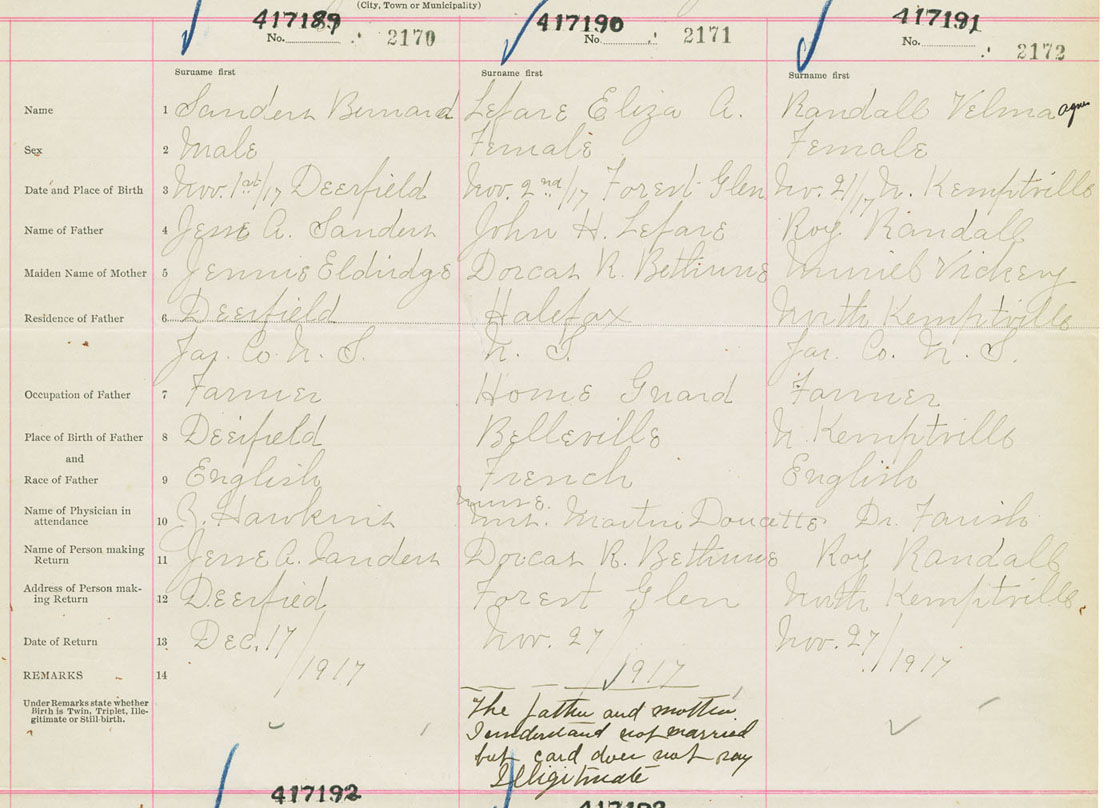 (City, Town or Municipality)
417189 417190 417191
No. 2170 No. 2171 No. 2172
Surname first Surname first Surname first
Name 1 Sanders Bernard Lefare Eliza A. Randall Velma Agnes
Sex 2 Male Female Female
Date and Place of Birth 3 Nov. 1st/17 Deerfield Nov. 2nd/17 Forest Glen No. 21/17 N. Kemptville
Name of Father 4 Jesse A. Sanders John H. Lefare Roy Randall
Maiden Name of Mother 5 Jennie Eldirdge Dorcas R. Bethune Muriel Vickery
Residence of Father 6 Deerfield Halefax North Kemptville
Yar. Co. N. S. N. S. Yar. Co. N. S.
Occupation of Father 7 Farmer Home Guard Farmer
Place of Birth of Father 8 Deerfield Belleville N. Kemptville
and
Race of Father 9 English French English
Name of Physician in
attendance 10 Hawkins nurse Mrs. Martin Doucette Dr. Farish
Name of Person making
Return 11 Jesse A. Sanders Dorcas R. Bethune Roy Randall
Address of Person mak-
ing Return 12 Deerfied Forest Glen North Kemptville
Date of Return 13 Dec. 17/ Nov. 27/ Nov. 27/
REMARKS 14 1917 1917 1917
Under Remarks state whether
Birth is Twin, Triplet, Ille-
gitimate or Still-birth.
The father and mother
I understand not married
but card does not say
Illigitimate
417192 417193